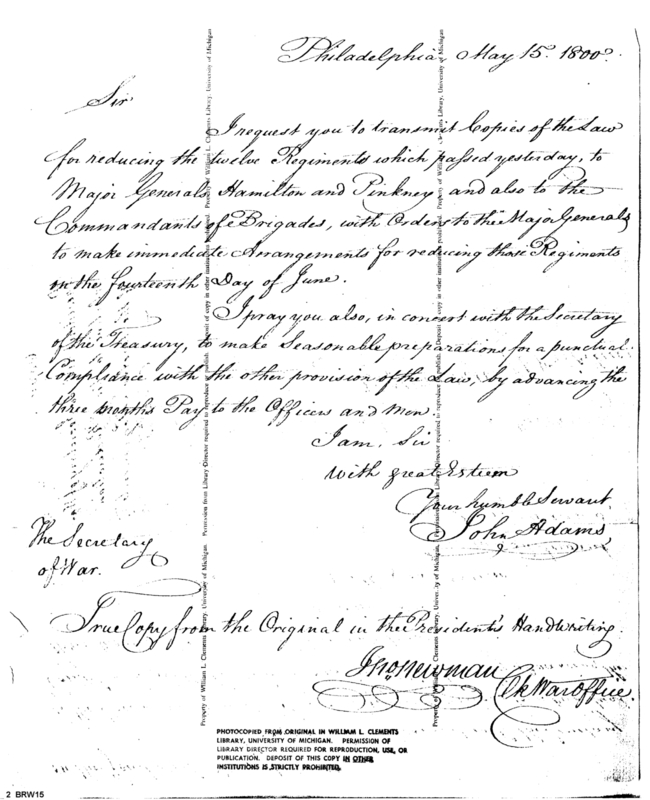 Philadelphia May 15th. 1800.
Sir
I request you to transmit Copies of the Law
for reducing the twelve Regiments which passed yesterday, to
Major Generals Hamilton and Pinkney and also to the
Commandants of Brigades, with Orders to the Major Generals
to make immediate Arrangements for reducing those Regiments
on the fourteenth Day of June.
I pray you also, in concert with the Secretary
of the Treasury, to make Seasonable preparations for a punctual
Compliance with the other provision of the Law, by advancing the
three months Pay to the Officers and Men.
I am, Sir
with great Esteem
Your humble Servant.
John Adams
The Secretary
of War.
True Copy from the Original in the President's HandWriting.
Jno Newman
Clk War office.
Property of William L. Clements Library, University of Michigan. Permission from Library Director required to reproduce or publish. Deposit of copy in other institutions prohibited. Property of William L. Clements Library, University of Michigan
Property of William L. Clements Library, University of Michigan. Permission from Library Director required to reproduce or publish. Deposit of copy in other institutions prohibited. Property of William L. Clements Library, University of Michigan
PHOTOCOPIED FROM ORIGINAL IN WILLIAM L. CLEMENTS
LIBRARY, UNIVERSITY OF MICHIGAN. PERMISSION OF
LIBRARY DIRECTOR REQUIRED FOR REPRODUCTION, USE, OR
PUBLICATION. DEPOSIT OF THIS COPY IN OTHER
INSTITUTIONS IS STRICTLY PROHIBITED.
2 BRW15